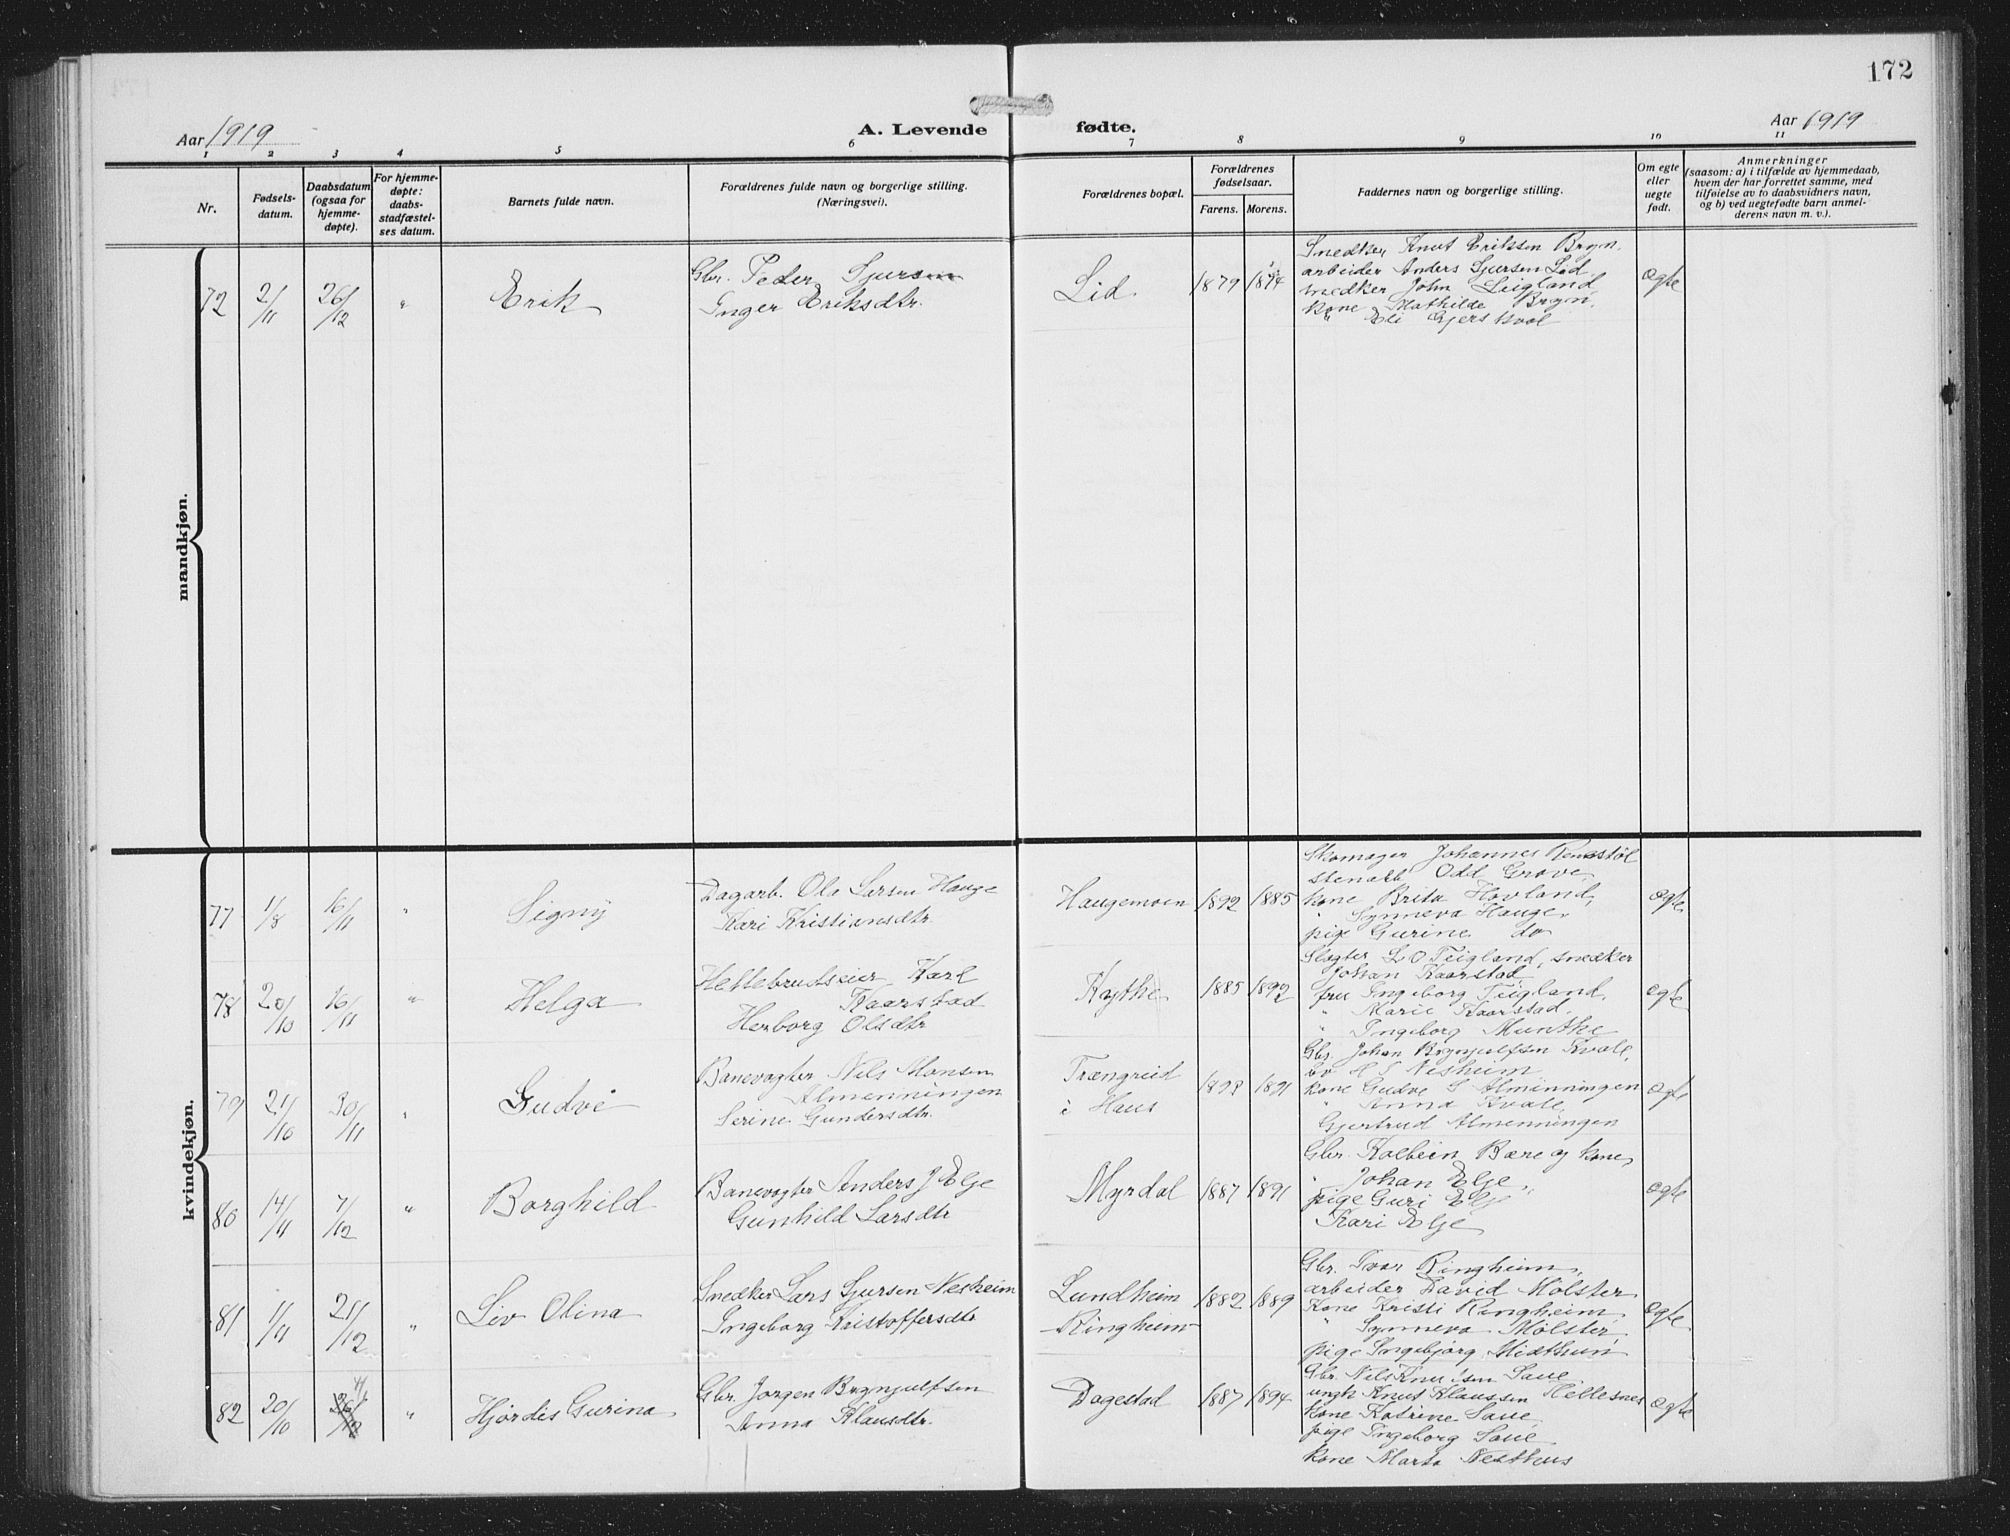 172
Aar 1919
A. Levende fødte.
Aar 1919
1 2 3 4 5 6 7 8 9 10 11
Nr.
Fødsels-
datum.
Daabsdatum
(ogsaa for
hjemme-
døpte).
For hjemme-
døpte:
daabs-
stadfæstel-
ses datum.
Barnets fulde navn.
Forældrenes fulde navn og borgerlige stilling.
(Næringsvei).
Forældrenes bopæl.
Forældrenes
fødselsaar.
Farens. Morens.
Faddernes navn og borgerlige stilling.
Om egte
eller
uegte
født.
Anmerkninger
(saasom: a) i tilfælde av hjemmedaab,
hvem der har forrettet samme, med
tilføielse av to daabsvidners navn,
og b) ved uegtefødte barn anmel-
derens navn m. v.).
mandkjøn.
72 2/11 26/12 " Erik
Gbr. Peder Sjursen
Inger Eriksdtr.
Lid. 1879 1874
Snedker Knut Eriksen Bryn,
arbeider Anders Sjursen Lid
snedker John Leigland
kone Mathilde Bryn,
" Eli Gjerskvol
egte
kvindekjøn.
77 1/8 16/11 " Signy
Dagarb. Ola Larsen Hauge
Kari Kristiansdtr.
Haugemoen 1892 1885
Skomager Johannes Renestøl
stenarb Odd Grove,
kone Brita Hovland,
" Synneva Hauge,
pige Gurine do
egte
78 20/10 16/11 " Helga
Hellebrudseier Karl
Kaarstad
Herborg Olsdtr
Kythe 1885 1892
Slagter L O Teigland, snedker
Johan Kaarstad
fru Ingeborg Teigland,
" Marie Kaarstad,
" Ingeborg Munthe
egte
79 21/10 30/11 " Gudve
Banevogter Nils Monsen
Almenningen
Serine Gundersdtr.
Trængreid
i Haus
1893 1891
Gbr. Johan Brynjulfsen Kvale,
bv H S Nesheim
kone Gudve S Almenningen
" Anna Kvale,
Gjertrud Almenningen
egte
80 14/11 7/12 " Borghild
Banevogter Anders J Elje
Gunhild Larsdtr
Myrdal 1887 1891
Gbr. Kolbein Bære og kone,
" Johan Elje, "
pige Guri Elje
Kari Elje
egte
81 1/11 21/12 " Liv Olina
Snedker Lars Sjursen Nesheim
Ingeborg Kristoffersdtr
Lundheim
Ringheim
1882 1889
Gbr. Ivar Ringheim,
arbeider David Mølster
Kone Kristi Ringheim,
" Synneva Mølster,
pige Ingebjørg Midthun
egte
82 20/10 26/12 " Hjørdis Gurina
Gbr. Jørgen Brynjulfsen
Anna Klausdtr.
Dagestad 1887 1894
Gbr. Nils Knutsen Saue,
ungk Knut Klaussen Hellesnes
kone Katrine Saue,
pige Ingeborg Saue
kone Marta Nesthus
egte